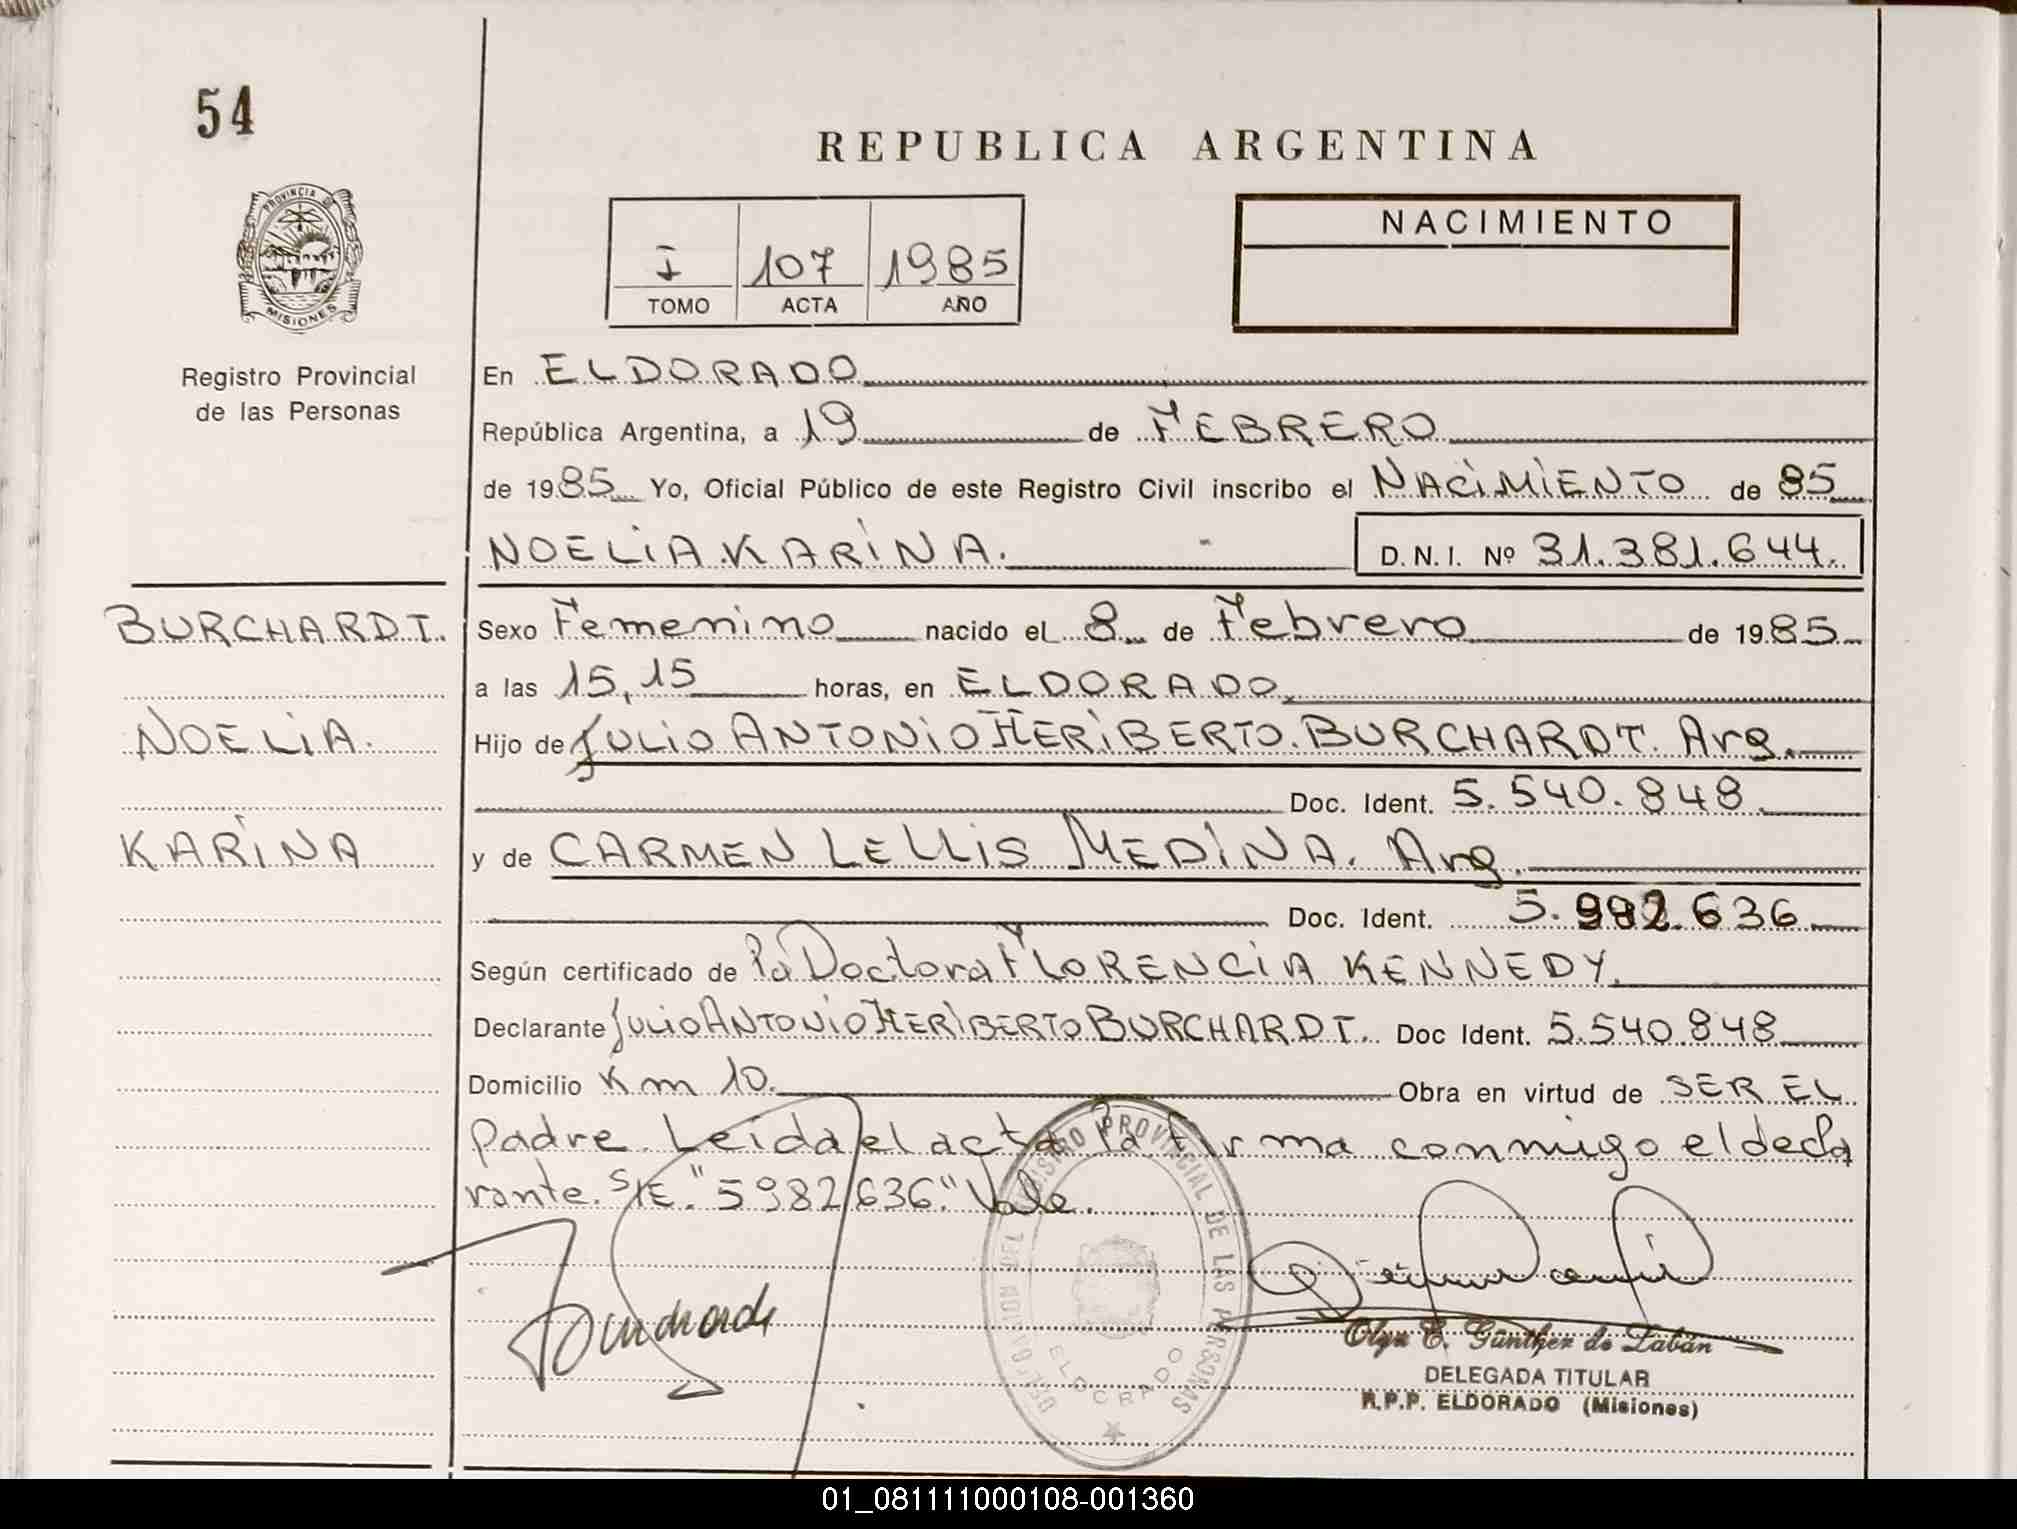 54
REPUBLICA ARGENTINA
PROVINCIA DE
MISIONES
I 107 1985
TOMO ACTA AÑO
NACIMIENTO
Registro Provincial
de las Personas
En ELDORADO
República Argentina, a 19 de FEBRERO
de 1985 Yo, Oficial Público de este Registro Civil inscribo el NACIMIENTO de 85
NOELIA KARINA. D.N.I. Nº 31.381.644.
BURCHARDT.
NOELIA.
KARINA
Sexo Femenino nacido el 8 de Febrero de 1985
a las 15,15 horas, en ELDORADO
Hijo de JULIO ANTONIO HERIBERTO BURCHARDT. Arg.
Doc. Ident. 5.540.848
y de CARMEN LELLIS MEDINA. Arg.
Doc. Ident. 5.982.636
Según certificado de la Doctora FLORENCIA KENNEDY.
Declarante JULIO ANTONIO HERIBERTO BURCHARDT. Doc Ident. 5.540.848
Domicilio Km 10. Obra en virtud de SER EL
padre. Leida el acta la firma conmigo el decla
rante. S/E. "5982636." Vale.
DELEGACION DEL REGISTRO PROVINCIAL DE LAS PERSONAS
ELDORADO
Olga E. Günther de Zabán
DELEGADA TITULAR
R.P.P. ELDORADO (Misiones)
01_081111000108-001360